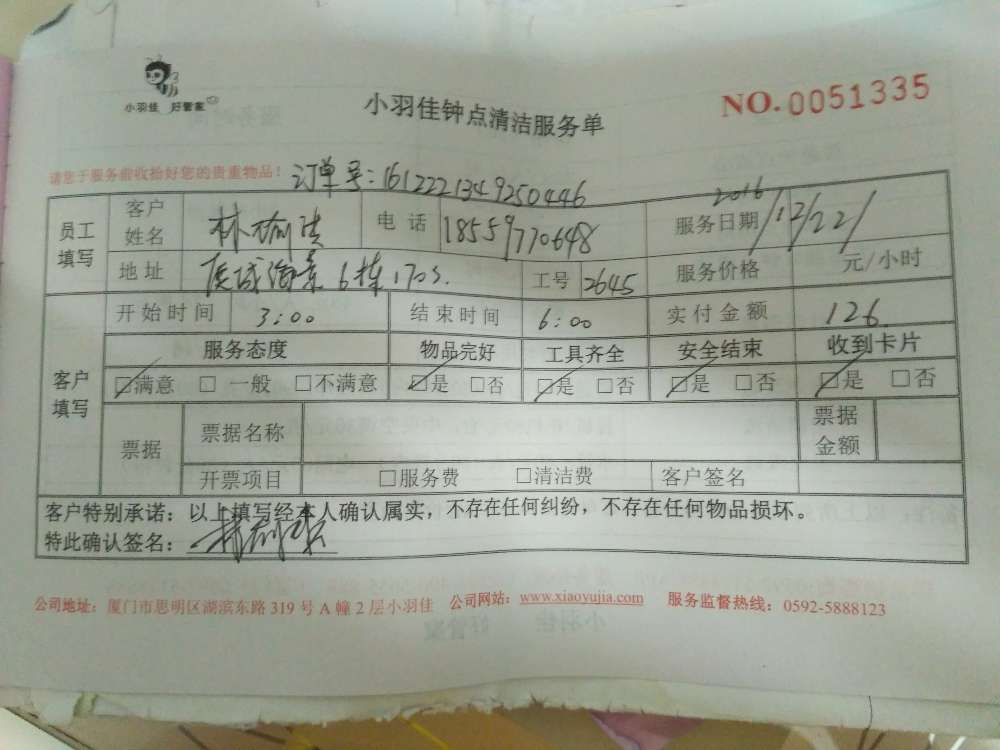 小羽佳 好管家
小羽佳钟点清洁服务单
NO.0051335
请您于服务前收拾好您的贵重物品！
订单号：1612221349250446
员工填写 客户姓名 林 电话 18559770648 服务日期 2016/12/22/
地址 海景6栋1703. 工号 2645 服务价格 元/小时
客户填写 开始时间 3:00 结束时间 6:00 实付金额 126
服务态度 物品完好 工具齐全 安全结束 收到卡片
☑满意 □一般 □不满意 ☑是 □否 ☑是 □否 ☑是 □否 ☑是 □否
票据 票据名称 票据金额
开票项目 □服务费 □清洁费 客户签名
客户特别承诺：以上填写经本人确认属实，不存在任何纠纷，不存在任何物品损坏。
特此确认签名：
公司地址：厦门市思明区湖滨东路319号A幢2层小羽佳 公司网站：www.xiaoyujia.com 服务监督热线：0592-5888123